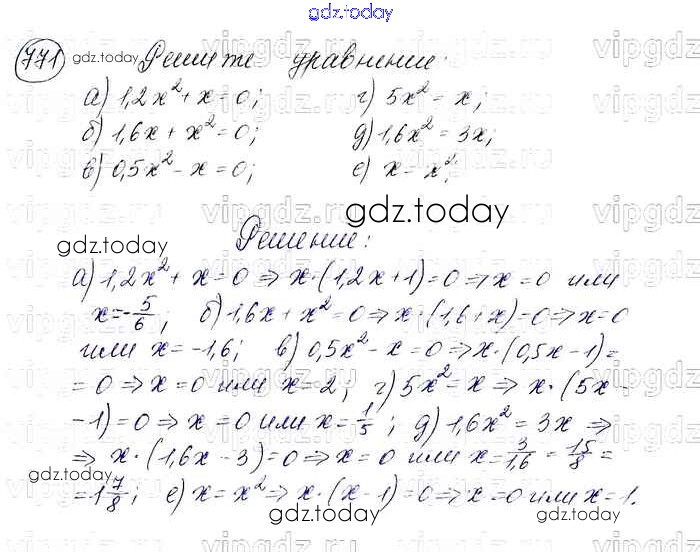 gdz.today
771 gdz.today Решите уравнение:
а) 1,2x² + x = 0; г) 5x² = x;
б) 1,6x + x² = 0; д) 1,6x² = 3x;
в) 0,5x² - x = 0; е) x = x²;
gdz.today
gdz.today Решение:
а) 1,2x² + x = 0 ⇒ x·(1,2x+1) = 0 ⇒ x = 0 или
x = -5/6; б) 1,6x + x² = 0 ⇒ x·(1,6+x) = 0 ⇒ x = 0
или x = -1,6; в) 0,5x² - x = 0 ⇒ x·(0,5x-1) =
= 0 ⇒ x = 0 или x = 2; г) 5x² = x ⇒ x·(5x-
-1) = 0 ⇒ x = 0 или x = 1/5; д) 1,6x² = 3x ⇒
⇒ x·(1,6x-3) = 0 ⇒ x = 0 или x = 3/1,6 = 15/8 =
gdz.today
= 1 7/8; е) x = x² ⇒ x·(x-1) = 0 ⇒ x = 0 или x = 1.
gdz.today
gdz.today
vipgdz.ru